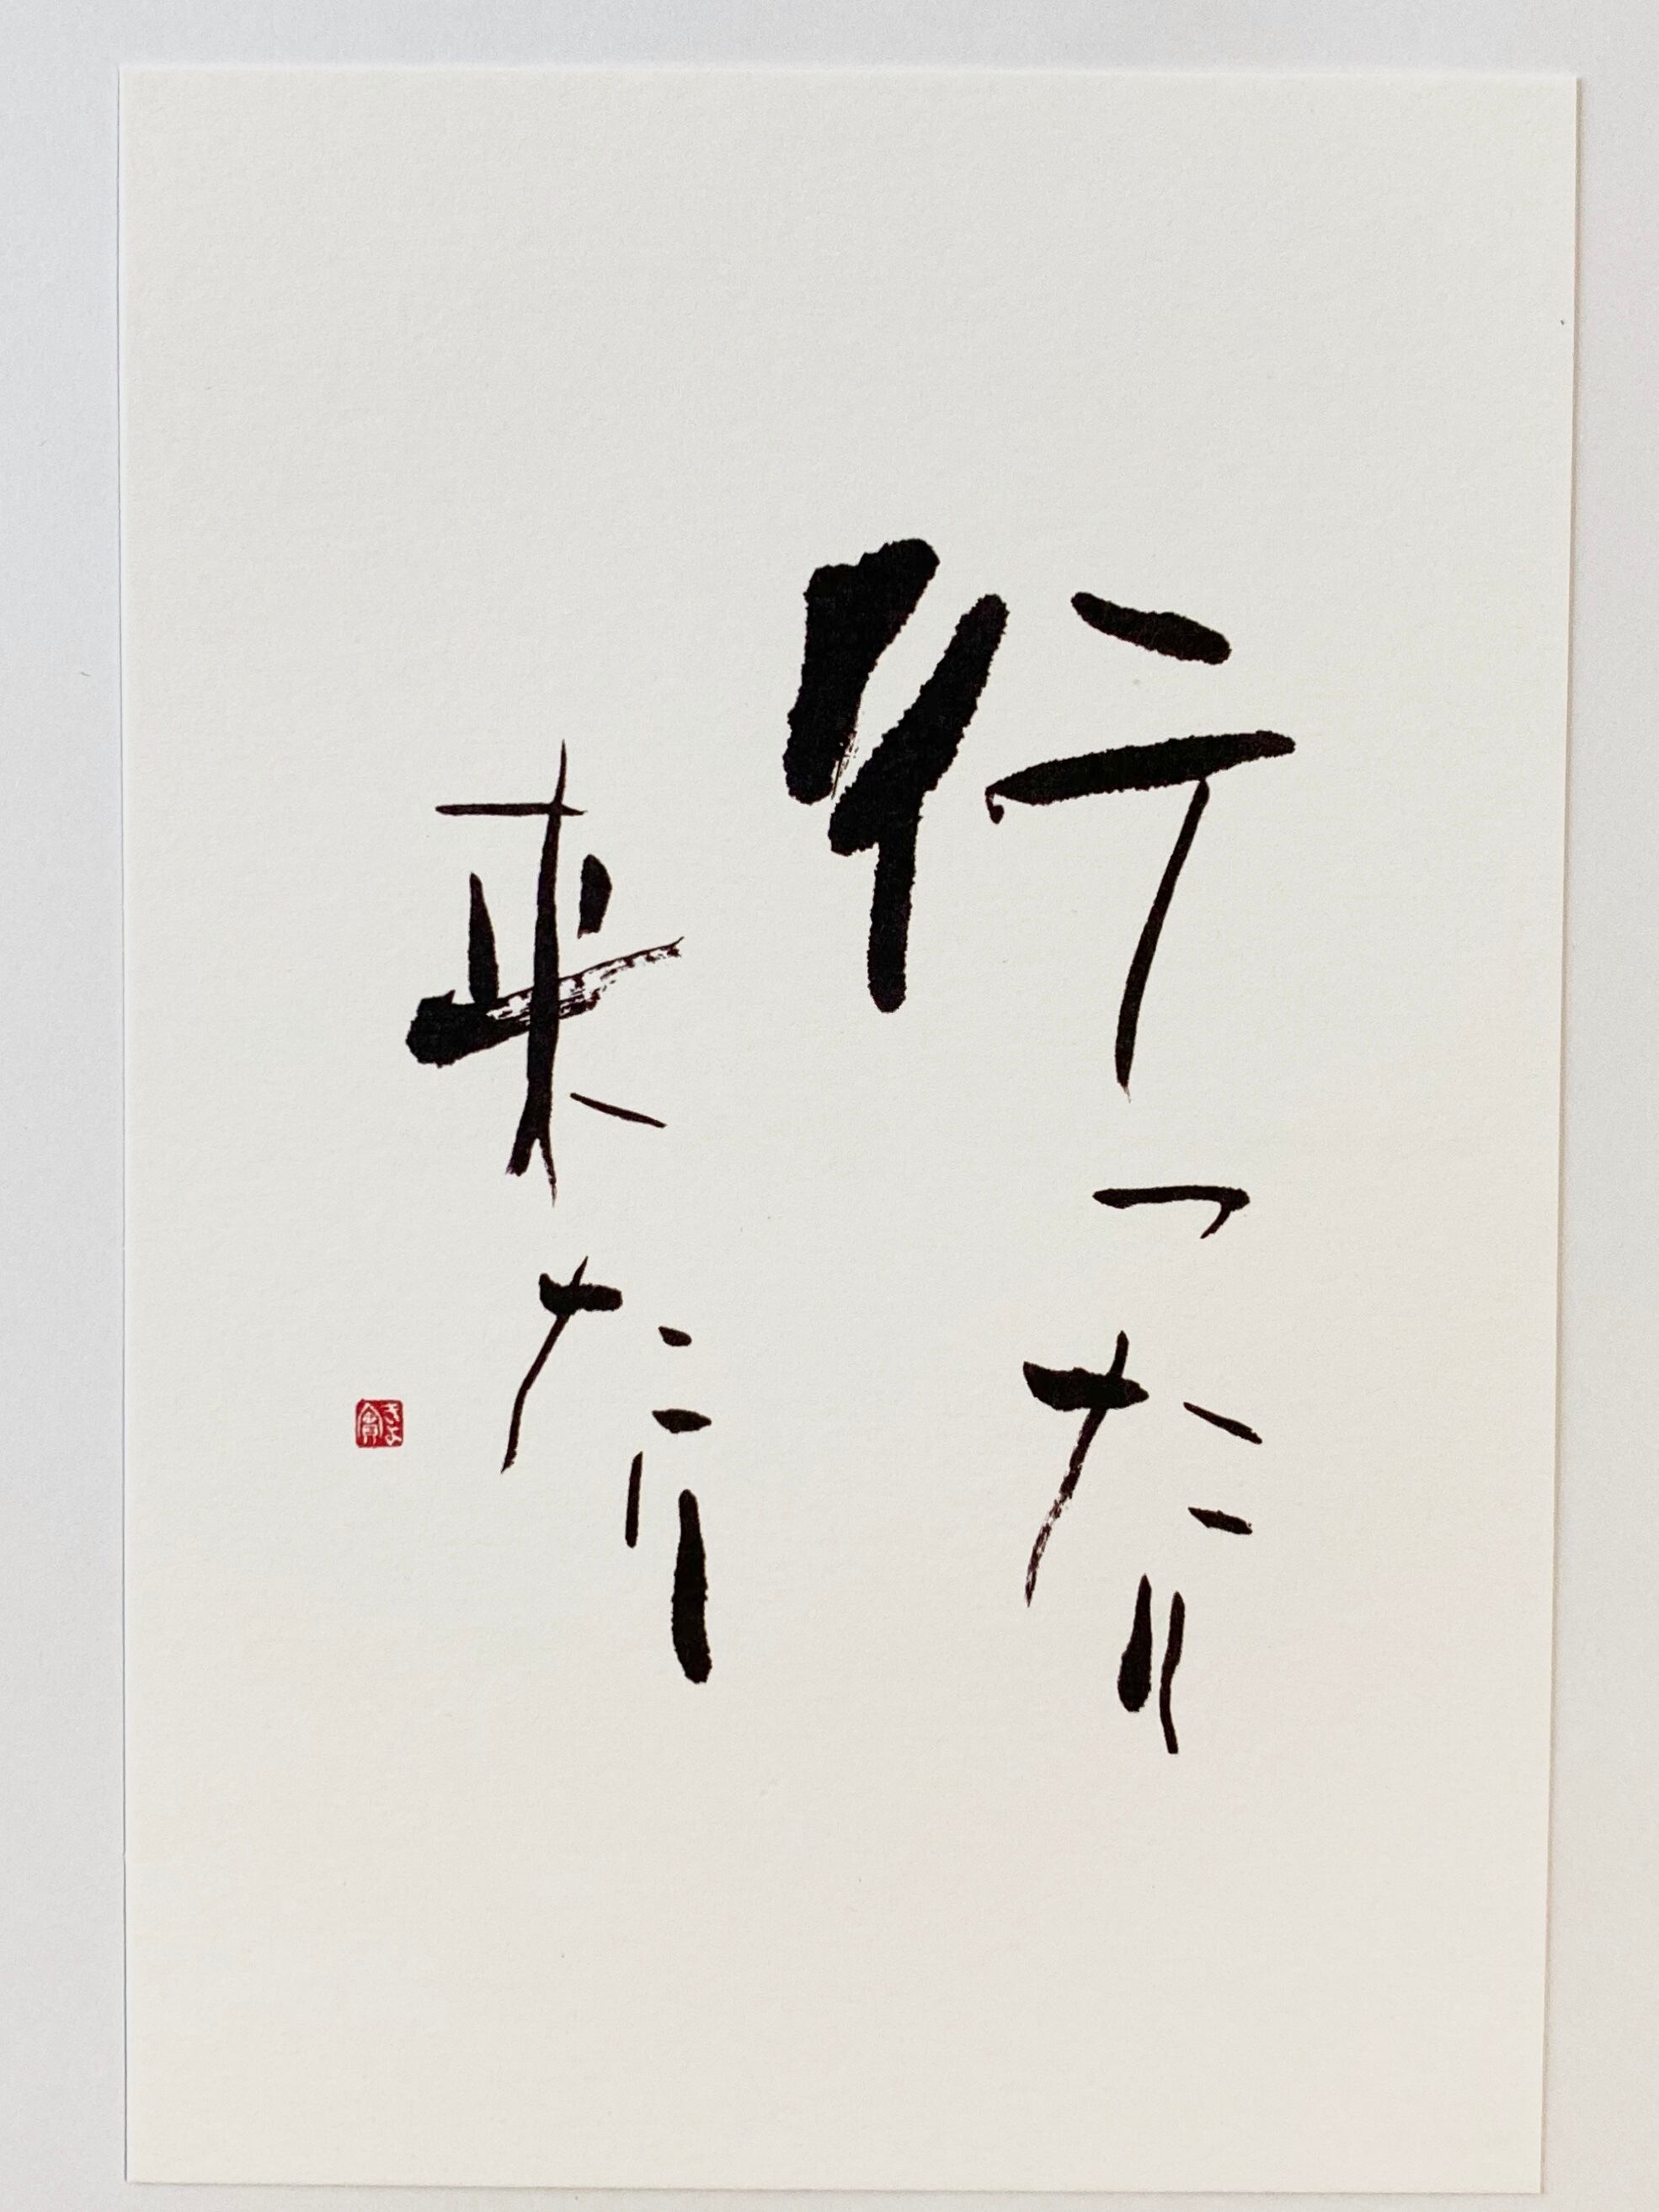 行ったり
来たり